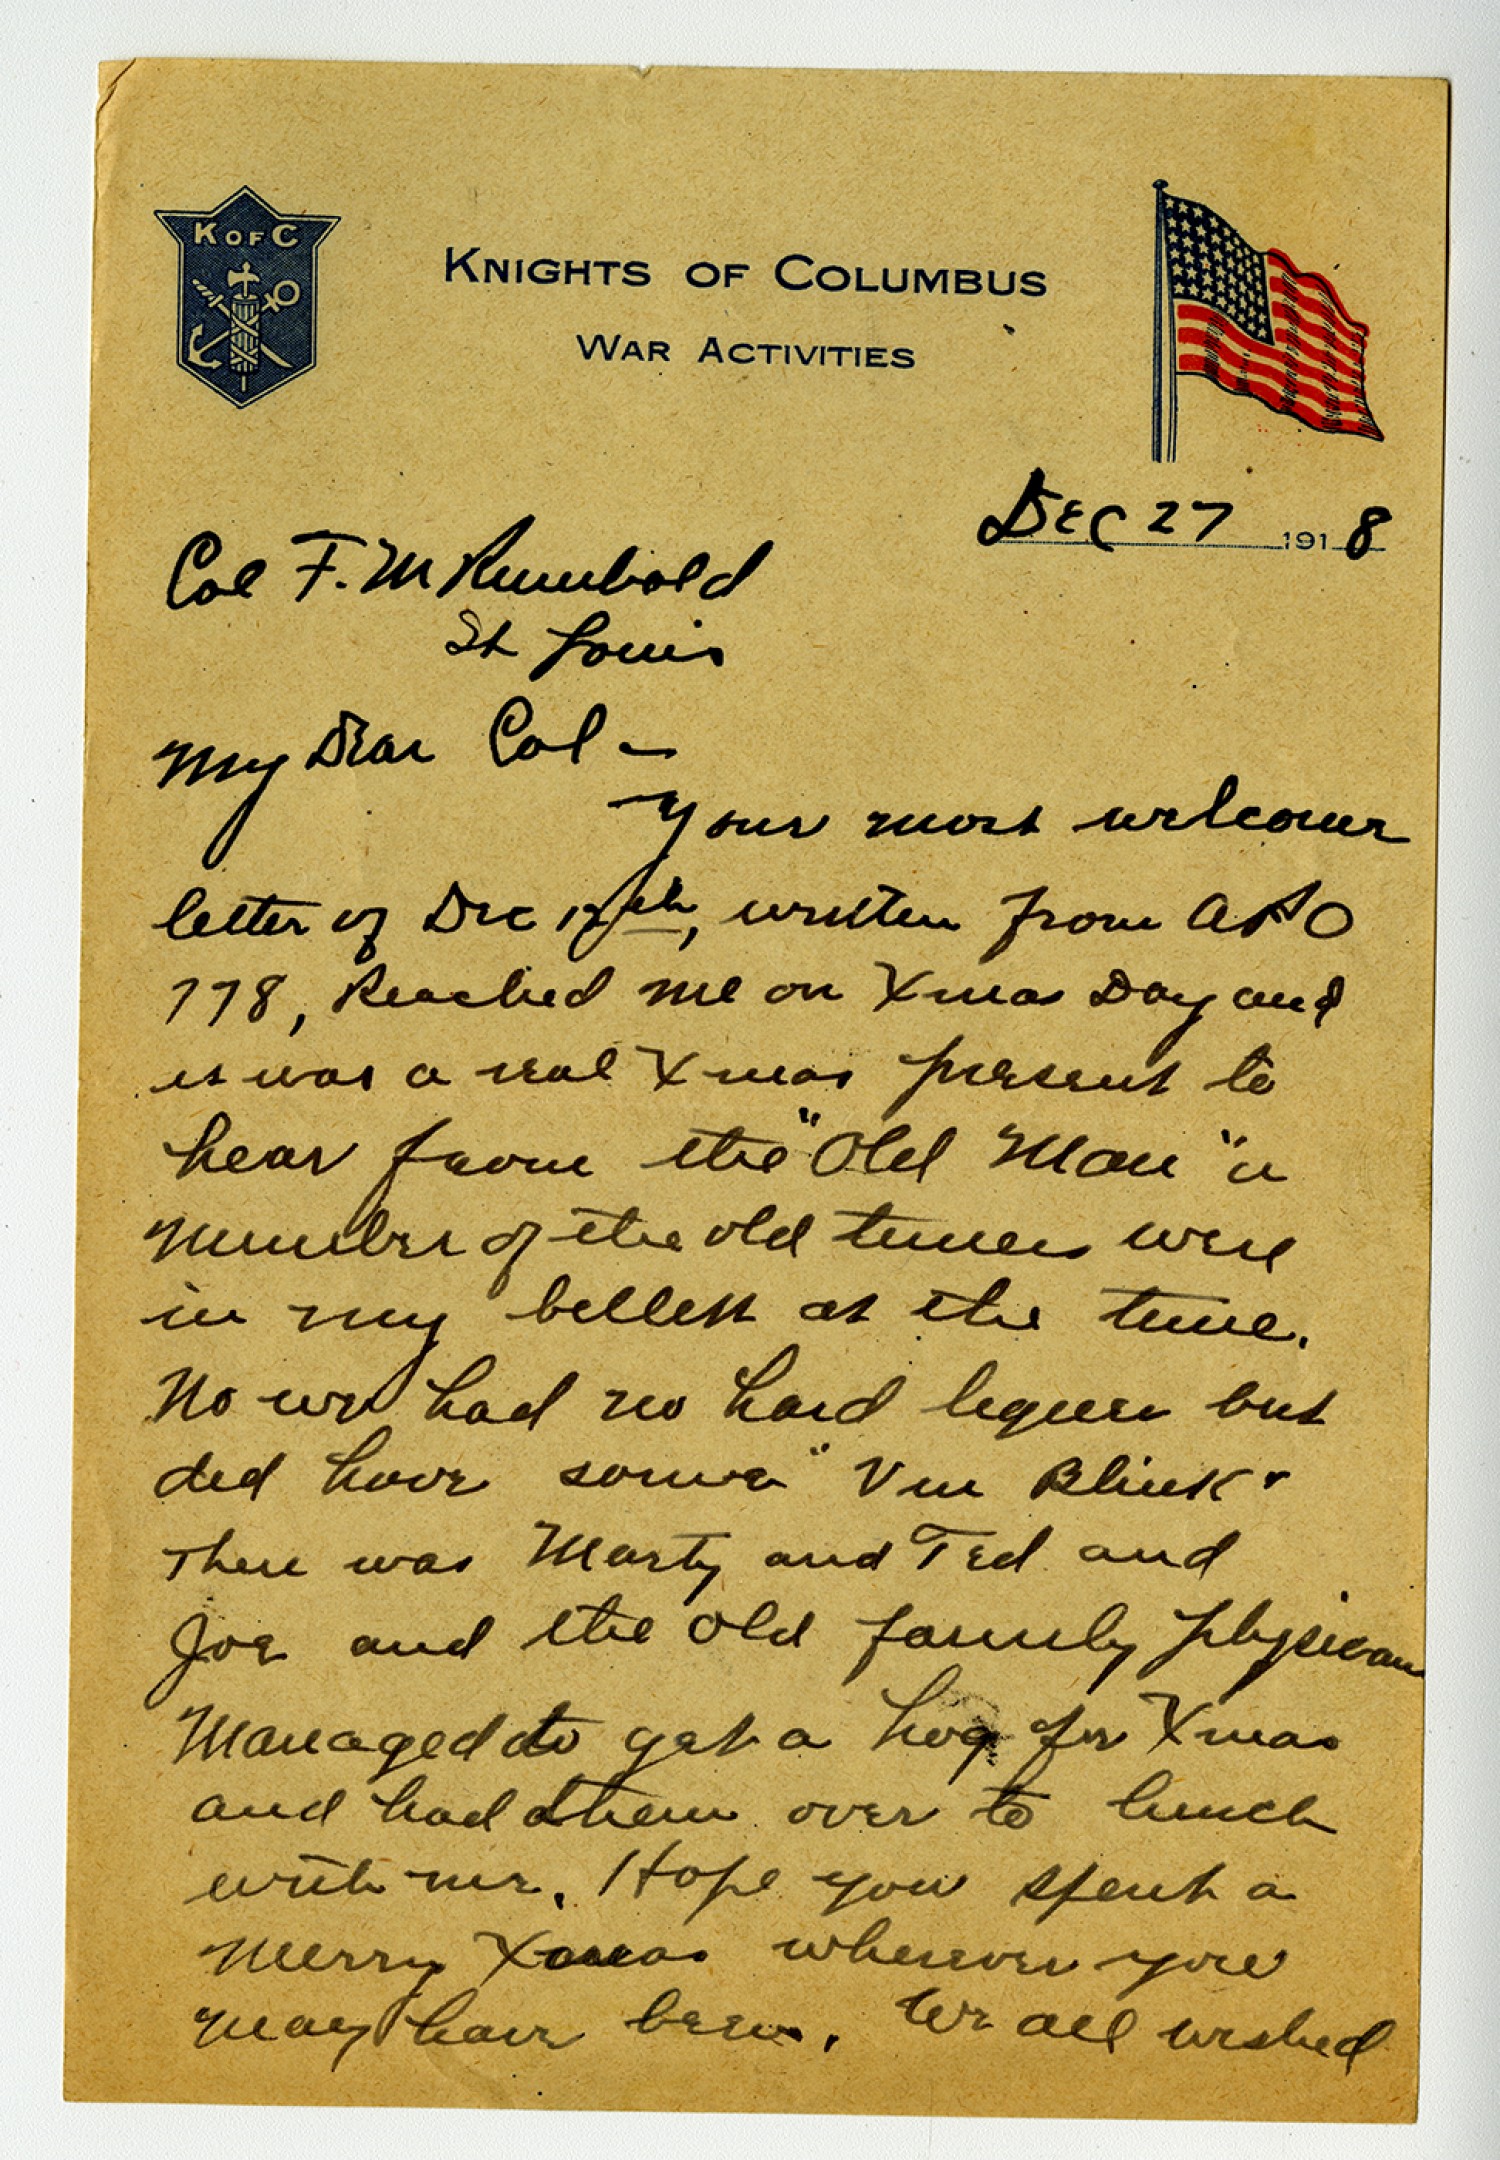 K OF C
KNIGHTS OF COLUMBUS
WAR ACTIVITIES
DEC 27 1918
Col F. M Rumbold
St Louis
My Dear Col –
Your most welcome
letter of Dec th, written from APO
778, Reached me on Xmas Day and
it was a real Xmas present to
hear from the "Old Man" a
number of the old timers were
in my billett at the time.
No we had no hard liquer but
did have some "Vin Blink"
There was Marty and Ted and
Joe and the old family physician
Managed to get a hog for Xmas
and had them over to lunch
with me. Hope you spent a
Merry Xmas wherever you
may have been. We all wished